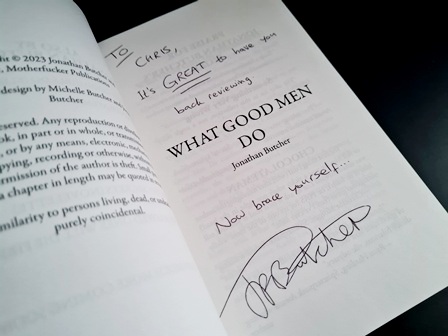 ht © 2023 Jonathan Butcher
Motherfucker Publication
design by Michelle Butcher
Butcher
served. Any reproduction or
ok, in part or in whole, or
or by any means, electronic,
pying, recording or otherwise,
ermission of the author is theft. Small
a chapter in length may be quoted
milarity to persons living, dead, or
purely coincidental.
TO CHRIS,
It's GREAT to have you
back reviewing
WHAT GOOD MEN
DO
Jonathan Butcher
Now brace yourself...
JPButcher